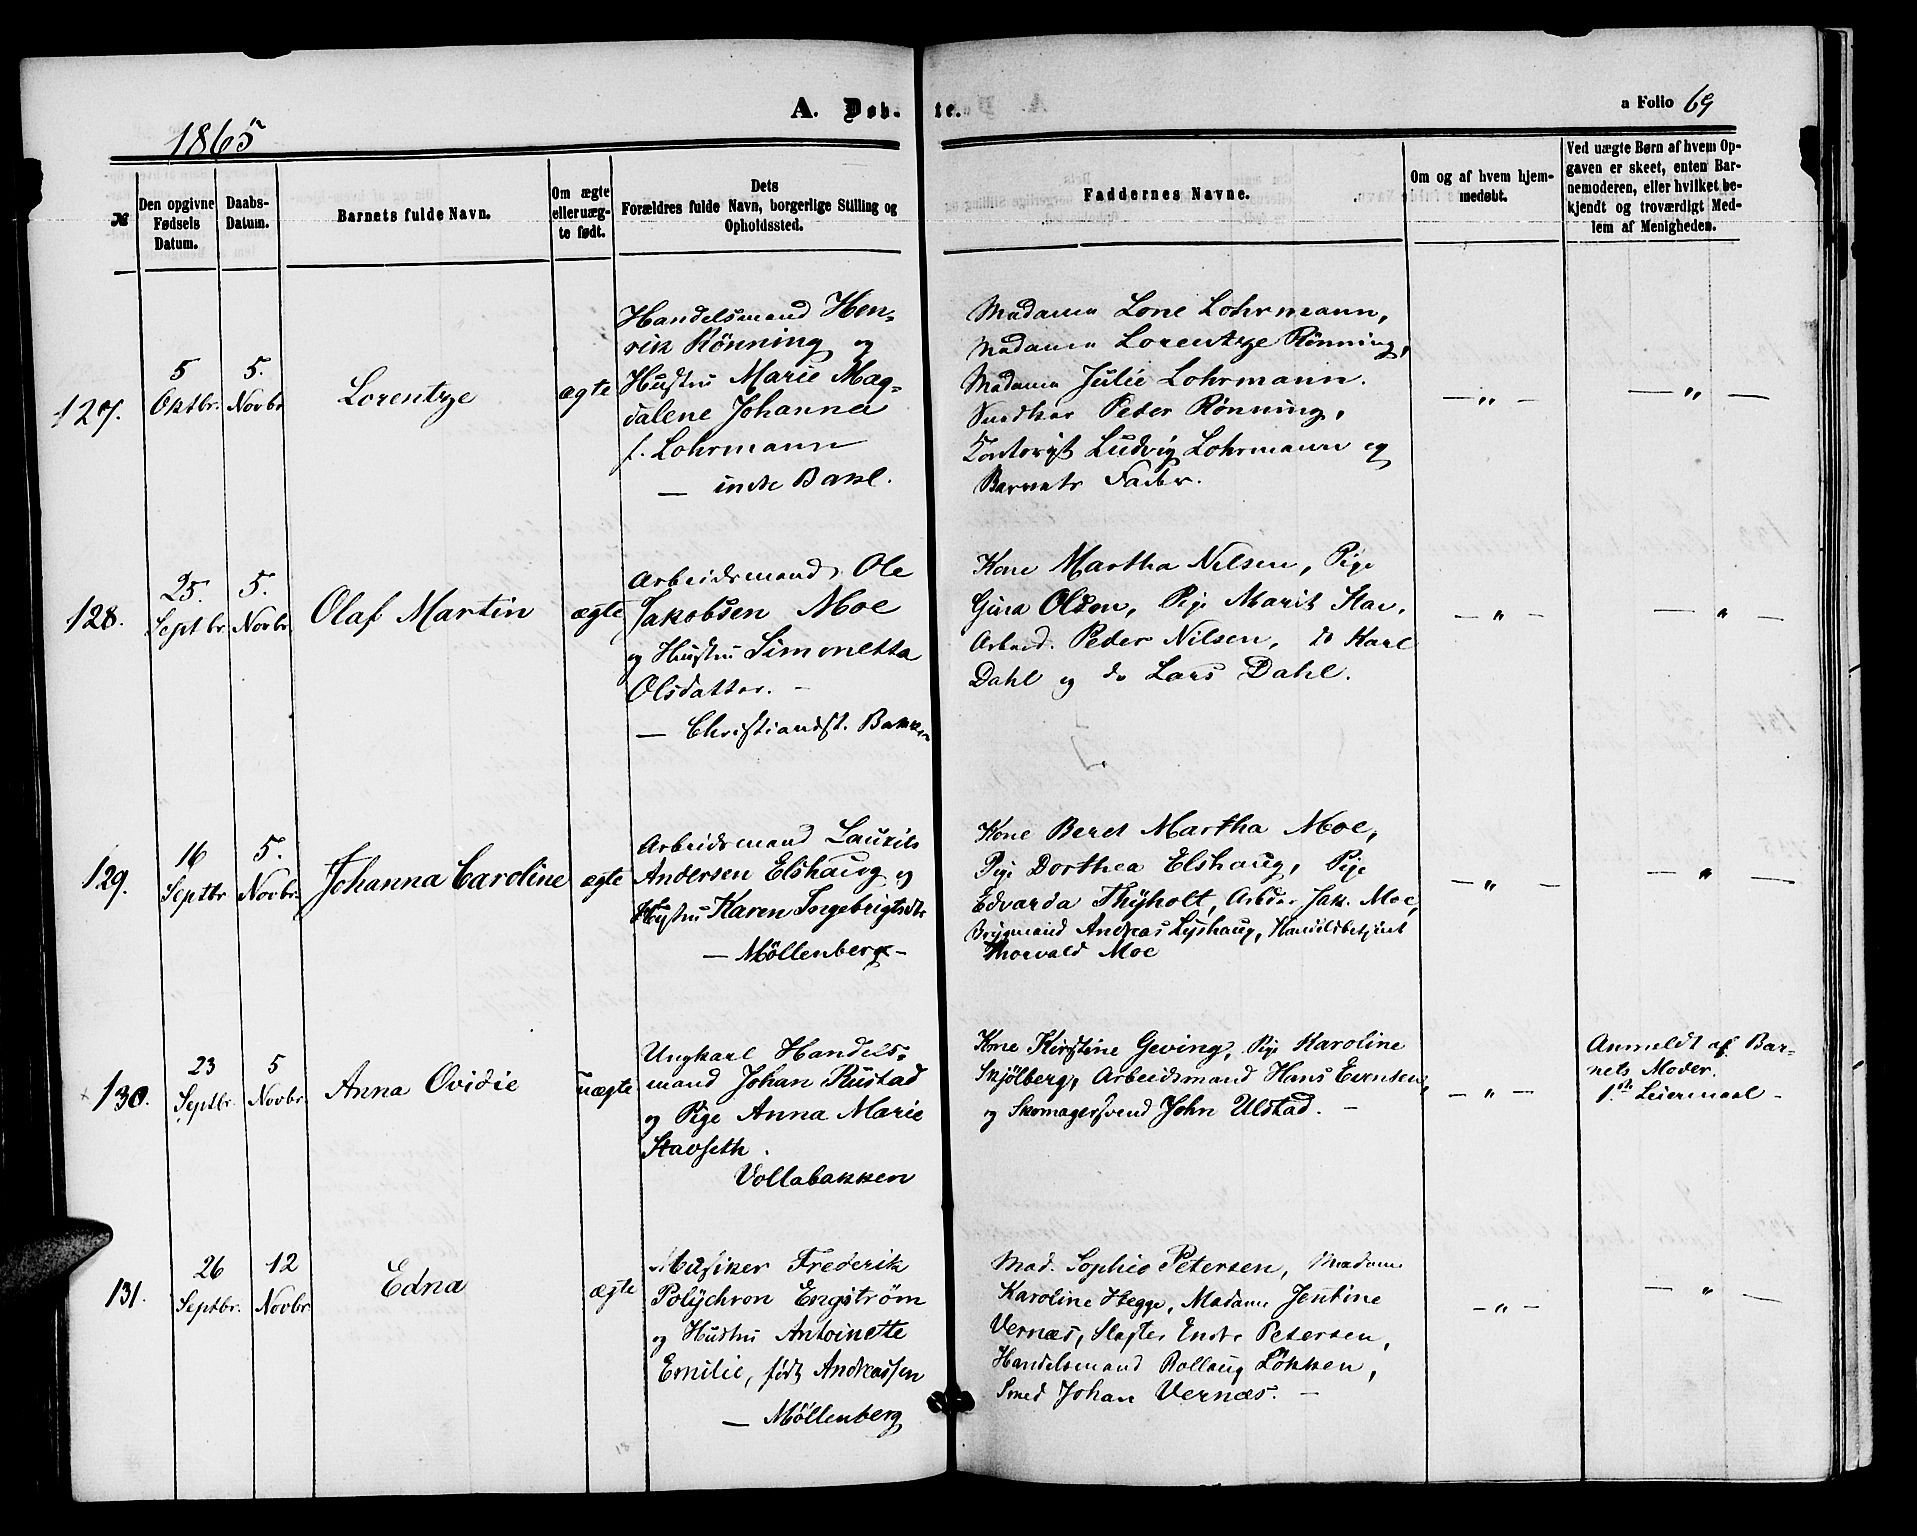 A. Døb-
te.
a Folio 69
1865
№
Den opgivne
Fødsels
Datum.
Daabs-
Datum.
Barnets fulde Navn.
Om ægte
eller uæg-
te født.
Dets
Forældres fulde Navn, borgerlige Stilling og
Opholdssted.
Faddernes Navne.
Om og af hvem hjem-
medøbt.
Ved uægte Børn af hvem Op-
gaven er skeet, enten Bar-
nemoderen, eller hvilket be-
kjendt og troværdigt Med-
lem af Menigheden.
127.
5
Oktbr.
5.
Novbr
Lorentze
ægte
Handelsmand Hen-
rik Rönning og
Hustru Marie Mag-
dalene Johanna
f. Lohrmann
— indre Bakl.
Madame Lone Lohrmann,
Madame Lorentze Rönning,
Madame Julie Lohrmann.
Snedker Peder Rønning,
Kontorist Ludvig Lohrmann og
Barnets Fader.
— „ —
— „ —
128.
25.
Septbr.
5.
Novbr.
Olaf Martin
ægte
Arbeidsmand Ole
Jakobsen Moe
og Hustru Simonetta
Olsdatter. —
— Christiandst. Bakken
Kone Martha Nilsen, Pige
Gina Olsen, Pige Marit Stav,
Arbeid. Peder Nilsen, do Karl
Dahl og do Lars Dahl.
— „ —
— „ —
129.
16
Septbr
5.
Novbr.
Johanna Caroline
ægte
Arbeidsmand Laurits
Andersen Elshaug og
Hustru Karen Ingebrigtsdtr
— Möllenberg —
Kone Beret Martha Moe,
Pige Dorthea Elshaug, Pige
Edvarda Thyholt, Arbdsr Jak. Moe,
Brygmand Andreas Lyshaug, Handelsbetjent
Thorvald Moe
— „ —
— „ —
130.
23
Septbr.
5
Novbr.
Anna Ovidie
uægte
Ungkarl Handels-
mand Johan Rustad
og Pige Anna Marie
Stavseth.
Vollabakken
Kone Kirstine Geving, Pige Karoline
Skjölberg, Arbeidsmand Hans Evensen,
og Skomagersvend John Ulstad. —
— „ —
Anmeldt af Bar-
nets Moder.
1ste Leiermaal —
131.
26
Septbr.
12
Novbr
Edna
ægte
Musiker Frederik
Polychron Engström
og Hustru Antoinette
Emilie, født Andreassen
— Möllenberg
Mad. Sophie Petersen, Madame
Karoline Hegge, Madame Jentine
Vernæs, Slagter Endre Petersen,
Handelsmand Rollaug Løkken,
Smed Johan Vernæs. —
— „ —
— „ —